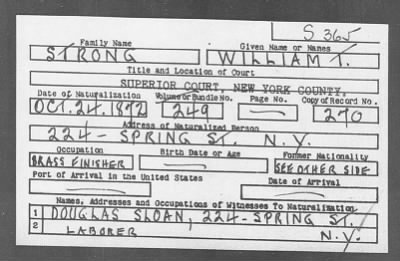 S 365
Family Name Given Name or Names
STRONG WILLIAM T.
Title and Location of Court
SUPERIOR COURT, NEW YORK COUNTY.
Date of Naturalization Volume or Bundle No. Page No. Copy of Record No.
OCT. 24. 1872 249 — 270
Address of Naturalized Person
224 - SPRING ST. N.Y.
Occupation Birth Date or Age Former Nationality
BRASS FINISHER — SEE OTHER SIDE
Port of Arrival in the United States Date of Arrival
— —
Names, Addresses and Occupations of Witnesses To Naturalization
1 DOUGLAS SLOAN, 224 - SPRING ST.
2 LABORER N.Y.